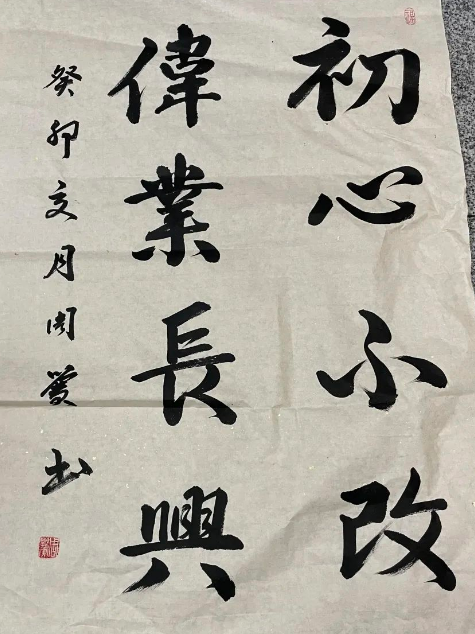 初心不改
偉業長興
癸卯文月周愛书